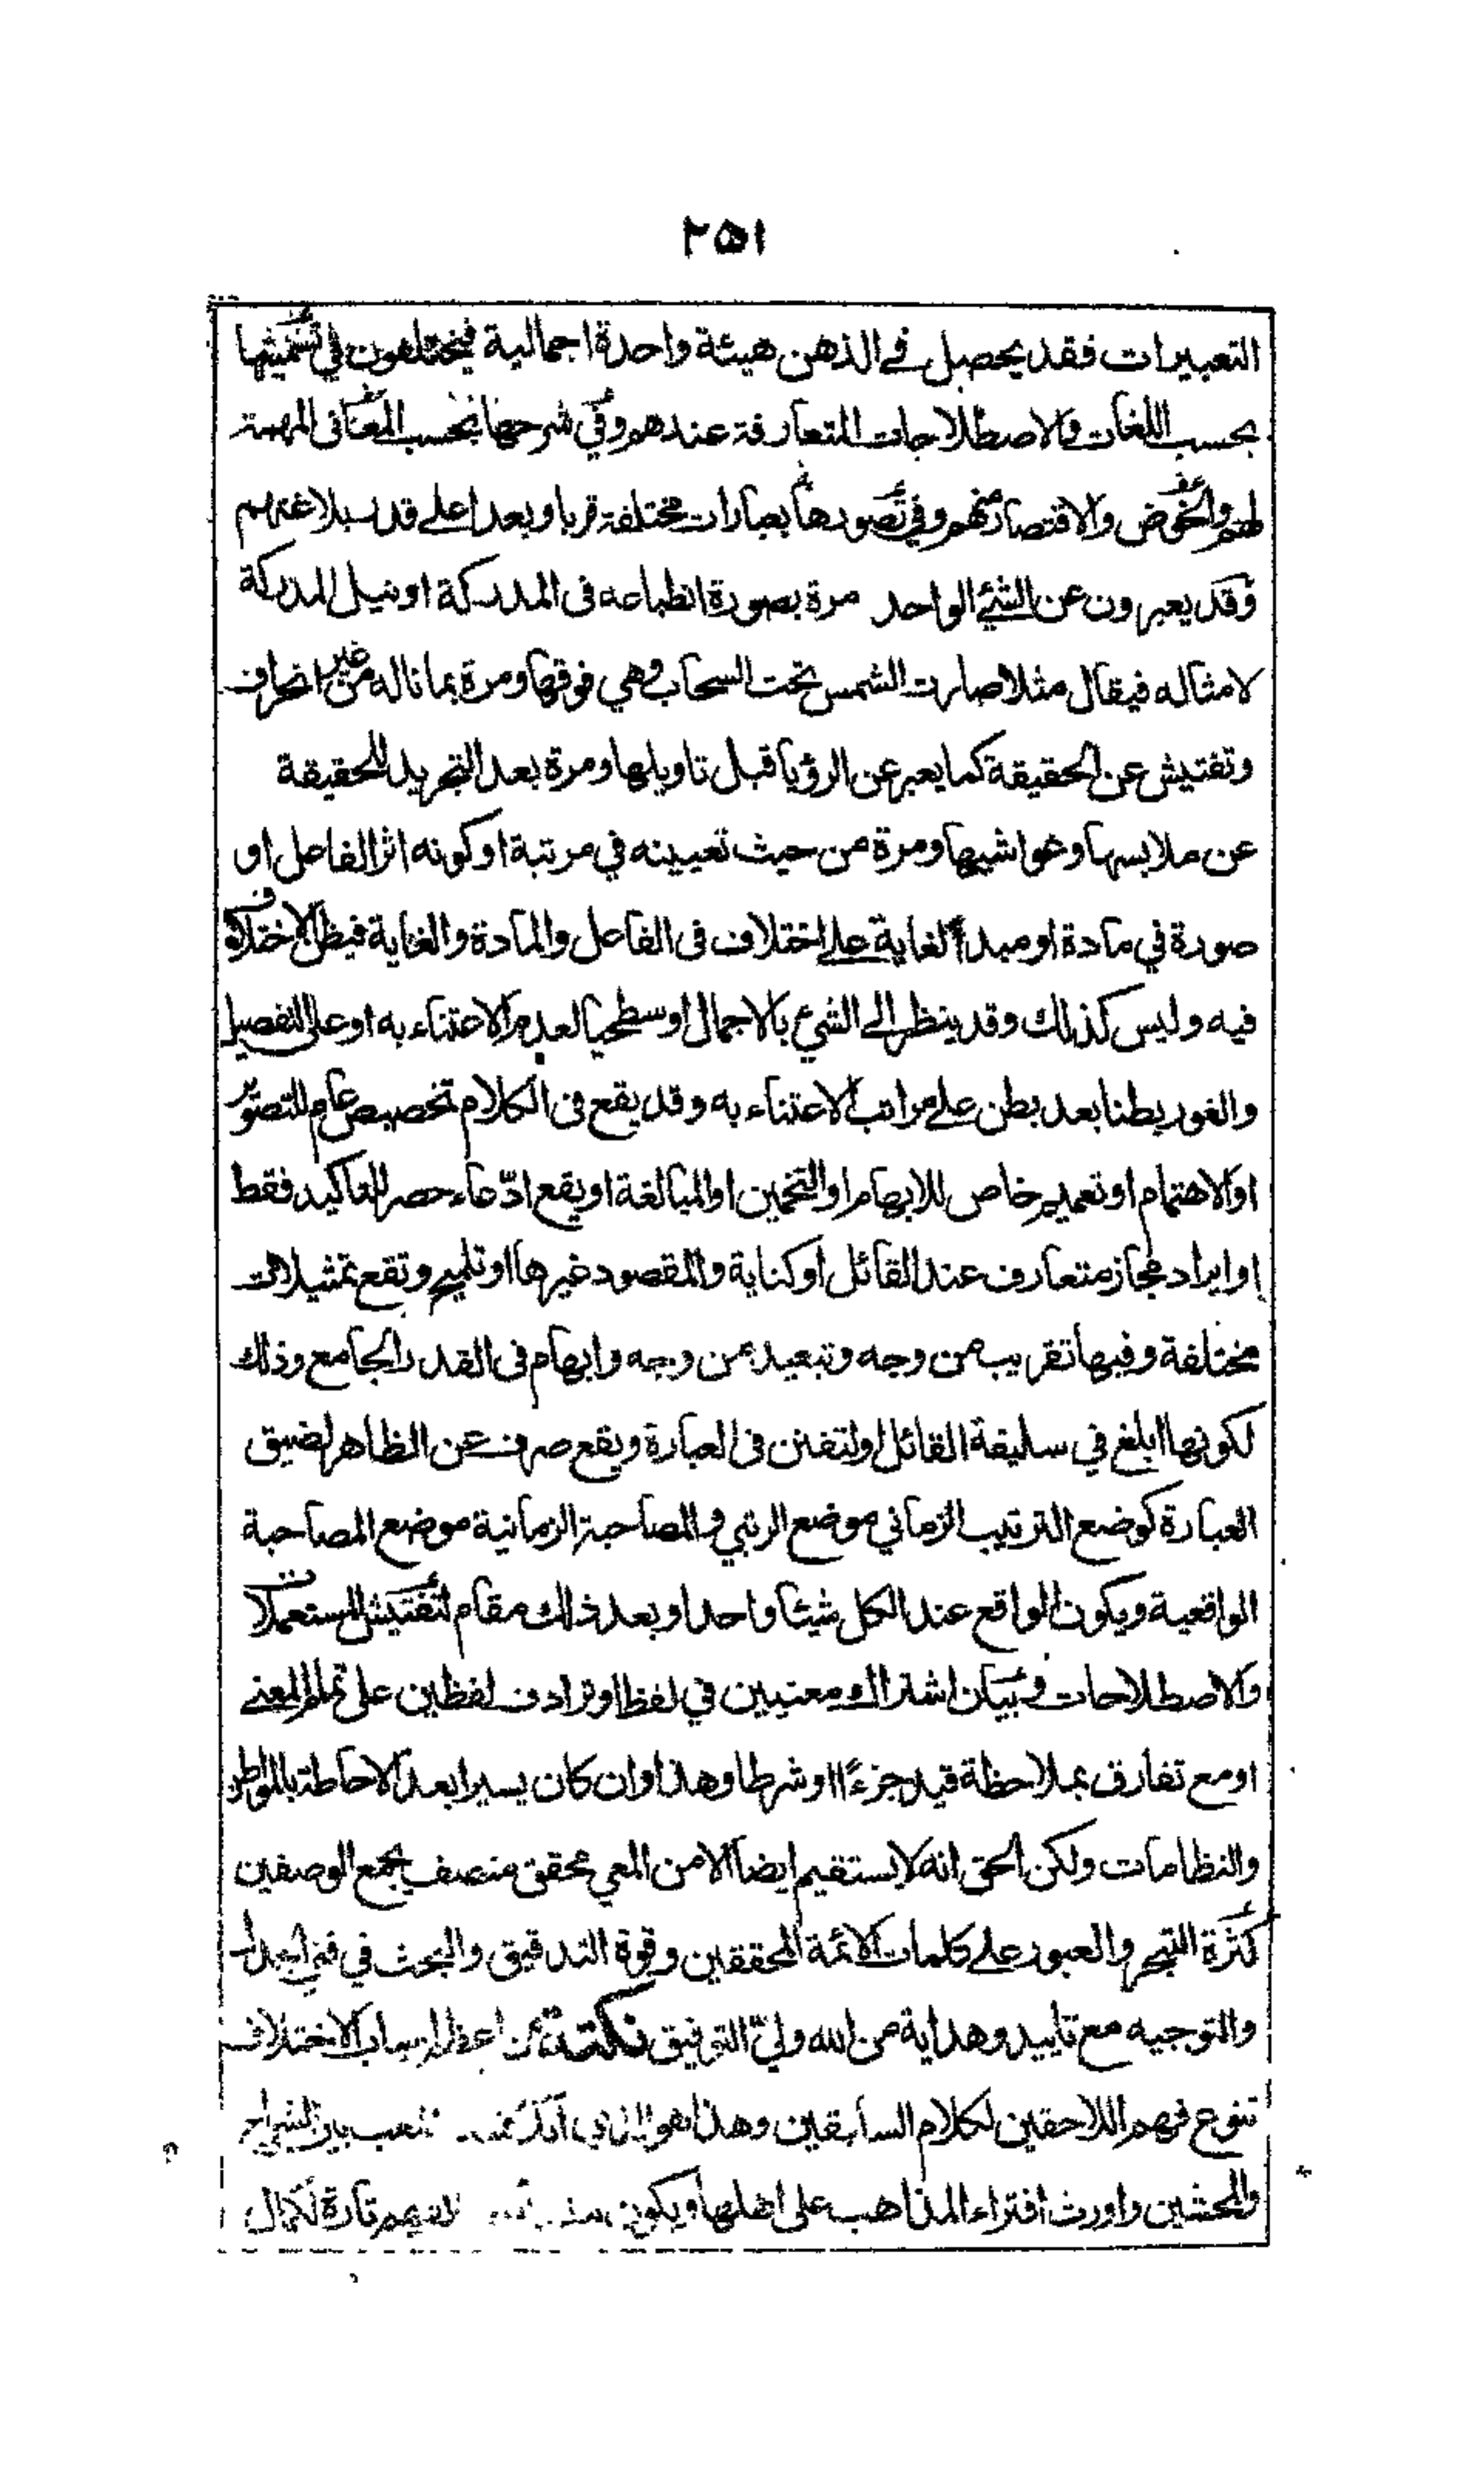 ٢٥١
التعبيرات فقد يحصل في الذهن هيئة واحدة اجمالية فيختلفون في تسميتها
بحسب اللغات والاصطلاحات المتعارفة عندهم وفي شرحها بحسب المعاني المهمة
لهم والخوض والاقتصار منهم وفي تصورها بعبارات مختلفة قربا وبعدا على قدر بلاغتهم
وقد يعبرون عن الشئ الواحد مرة بصورة انطباعه فى المدركة او نيل المدركة
لامثاله فيقال مثلا صارت الشمس تحت السحاب وهي فوقها ومرة بما ناله من غير انحراف
وتفتيش عن الحقيقة كما يعبر عن الرؤيا قبل تاويلها ومرة بعد التجريد للحقيقة
عن ملابسها وغواشيها ومرة من حيث تعيينه في مرتبة او كونه اثر الفاعل او
صورة في مادة او مبدأ لغاية على اختلاف فى الفاعل والمادة والغاية فيظن الاختلاف
فيه وليس كذلك وقد ينظر الى الشيء بالاجمال او سطحيا لعدم الاعتناء به او على التفصيل
والغور بطنا بعد بطن على مراتب الاعتناء به وقد يقع فى الكلام تخصيص عام للتصوير
او الاهتمام او تعميم خاص للابهام او التخمين او المبالغة او يقع ادّعاء حصر للتاكيد فقط
او ايراد مجاز متعارف عند القائل او كناية والمقصود غيرها او تلميح وتقع تمثيلات
مختلفة وفيها تقريب من وجه وتبعيد من وجه وابهام فى القدر الجامع وذلك
لكونها ابلغ في سليقة القائل او لتفنن فى العبارة ويقع صرف عن الظاهر لضيق
العبارة كوضع الترتيب الزماني موضع الرتبي والمصاحبة الزمانية موضع المصاحبة
الواقعية ويكون الواقع عند الكل شيئا واحدا وبعد ذلك مقام لتفتيش المستعملات
والاصطلاحات وبيان اشتراك معنيين في لفظ او ترادف لفظين على تمام المعنى
او مع تفارق بملاحظة قيد جزءًا او شرطا وهذا وان كان يسيرا بعد الاحاطة
والنظامات ولكن الحق انه لا يستقيم ايضا الا من المعي محقق منصف يجمع الوصفين
كثرة التبحر والعبور على كلمات الائمة المحققين وقوة التدقيق والبحث في فني الجدل
والتوجيه مع تاييد وهداية من الله ولي التوفيق نكتة من اعظم اسباب الاختلاف
تنوع فهم اللاحقين لكلام السابقين وهذا هو الذي بين الشراح
والمحشين واورث افتراء المذاهب على اهلها ويكون تارة لكمال